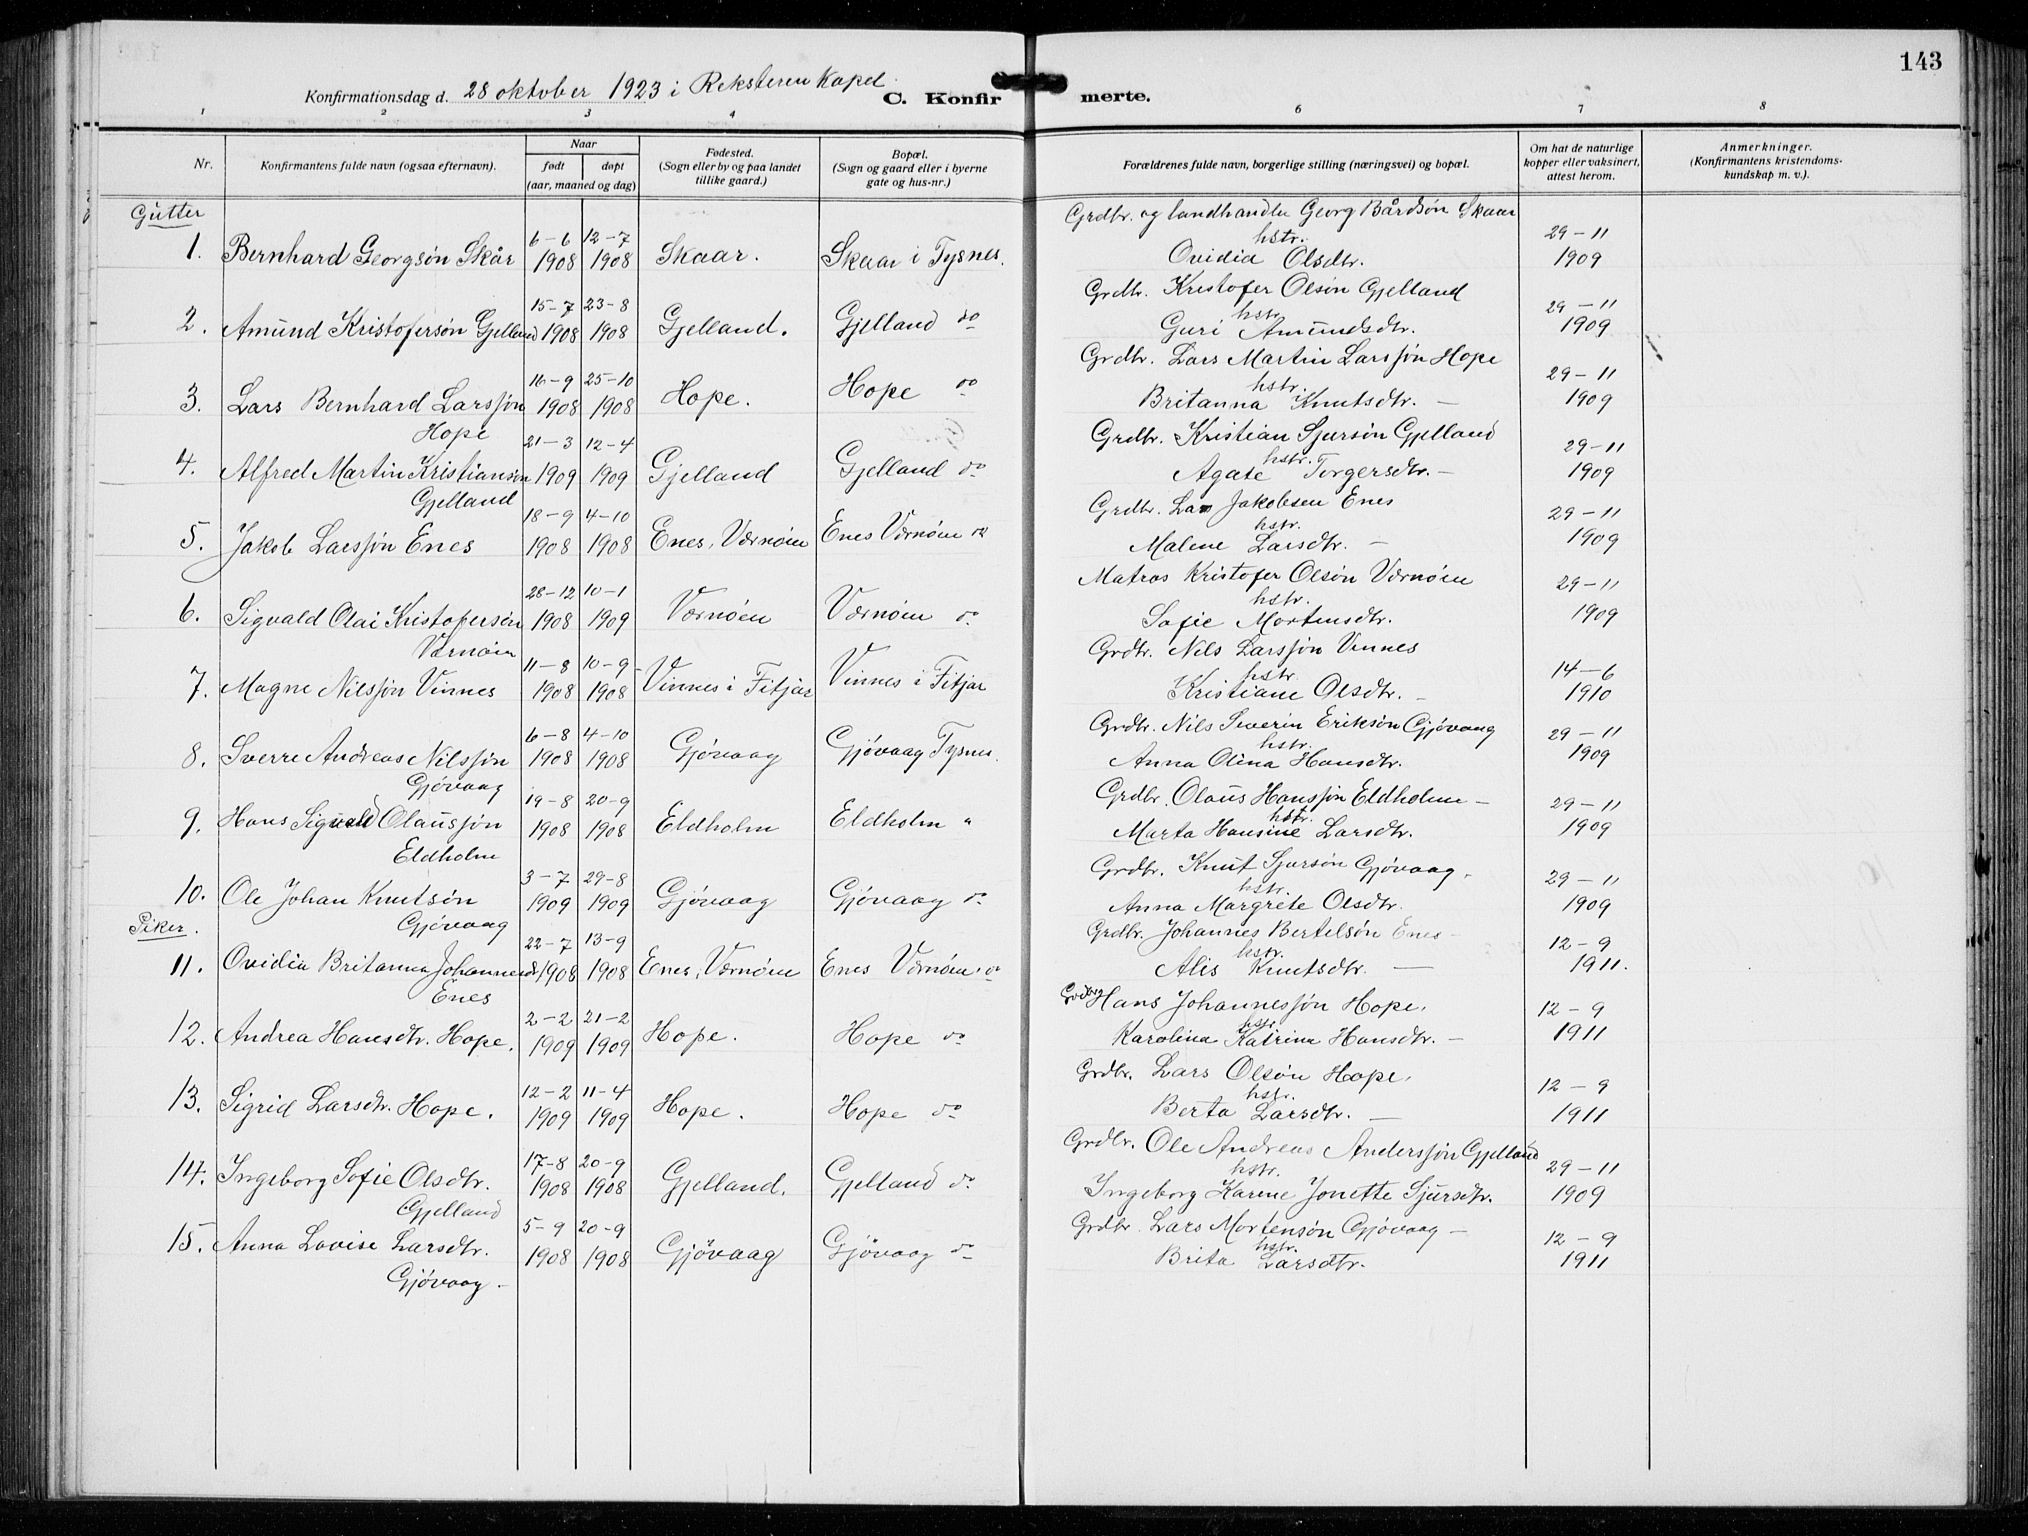 143
Konfirmationsdag d. 28 oktober 1923 i Reksteren Kapel. C. Konfirmerte.
1 2 3 4 6 7 8
Nr. Konfirmantens fulde navn (ogsaa efternavn). Naar født døpt (aar, maaned og dag) Fødested. (Sogn eller by og paa landet tillike gaard.) Bopæl. (Sogn og gaard eller i byerne gate og hus-nr.) Forældrenes fulde navn, borgerlige stilling (næringsvei) og bopæl. Om hat de naturlige kopper eller vaksinert, attest herom. Anmerkninger. (Konfirmantens kristendomskundskap m. v.).
Gutter
Grdbr. og landhandler Georg Bårdsøn Skaar
1. Bernhard Georgsøn Skår 6–6 1908 12–7 1908 Skaar. Skaar i Tysnes. hstr. Ovidia Olsdtr. 29–11 1909
Grdbr. Kristofer Olsøn Gjelland
2. Amund Kristofersøn Gjelland 15–7 1908 23–8 1908 Gjelland. Gjelland do hstr. Guri Amundsdtr. 29–11 1909
Grdbr. Lars Martin Larssøn Hope
3. Lars Bernhard Larssøn 16–9 1908 25–10 1908 Hope. Hope do hstr. Britanna Knutsdtr. – 29–11 1909
Hope
Grdbr. Kristian Sjursøn Gjelland
4. Alfred Martin Kristiansøn 21–3 1909 12–4 1909 Gjelland Gjelland do hstr. Agate Torgersdtr. – 29–11 1909
Gjelland
Grdbr. Lars Jakobsen Enes
5. Jakob Larssøn Enes 18–9 1908 4–10 1908 Enes, Værnøen Enes Værnøen do hstr. Malene Larsdtr. – 29–11 1909
Matros Kristofer Olsøn Værnøen
6. Sigvald Olai Kristofersøn 28–12 1908 10–1 1909 Værnøen Værnøen do hstr. Sofie Mortensdtr. 29–11 1909
Værnøen
Grdbr. Nils Larssøn Vinnes
7. Magne Nilssøn Vinnes 11–8 1908 10–9 1908 Vinnes i Fitjar Vinnes i Fitjar hstr. Kristiane Olsdtr. – 14–6 1910
Grdbr. Nils Severin Eriksøn Gjøvaag
8. Sverre Andreas Nilssøn 6–8 1908 4–10 1908 Gjøvaag Gjøvaag Tysnes. hstr. Anna Olina Hansdtr. 29–11 1909
Gjøvaag
Grdbr. Olaus Hanssøn Eldholm –
9. Hans Sigvald Olaussøn 19–8 1908 20–9 1908 Eldholm Eldholm " hstr. Marta Hansine Larsdtr. 29–11 1909
Eldholm
Grdbr. Knut Sjursøn Gjøvaag.
10. Ole Johan Knutsøn 3–7 1909 29–8 1909 Gjøvaag Gjøvaag do hstr. Anna Margrete Olsdtr. 29–11 1909
Gjøvaag
Piker.
Grdbr. Johannes Bertelsøn Enes –
11. Ovidia Britanna Johannesd. 22–7 1908 13–9 1908 Enes, Værnøen Enes Værnøen do hstr. Alis Knutsdtr. – 12–9 1911.
Enes
Grdbr. Hans Johannessøn Hope.
12. Andrea Hansdtr. Hope. 2–2 1909 21–2 1909 Hope. Hope do hstr. Karolina Katrina Hansdtr. – 12–9 1911
Grdbr. Lars Olsøn Hope.
13. Sigrid Larsdtr. Hope. 12–2 1909 11–4 1909 Hope. Hope do hstr. Berta Larsdtr. – 12–9 1911
Grdbr. Ole Andreas Anderssøn Gjelland
14. Ingeborg Sofie Olsdtr. 17–8 1908 20–9 1908 Gjelland. Gjelland do hstr. Ingeborg Karene Jonette Sjursdtr. 29–11 1909
Gjelland
Grdbr. Lars Mortensøn Gjøvaag –
15. Anna Lovise Larsdtr. 5–9 1908 20–9 1908 Gjøvaag Gjøvaag do hstr. Brita Larsdtr. 12–9 1911
Gjøvaag –